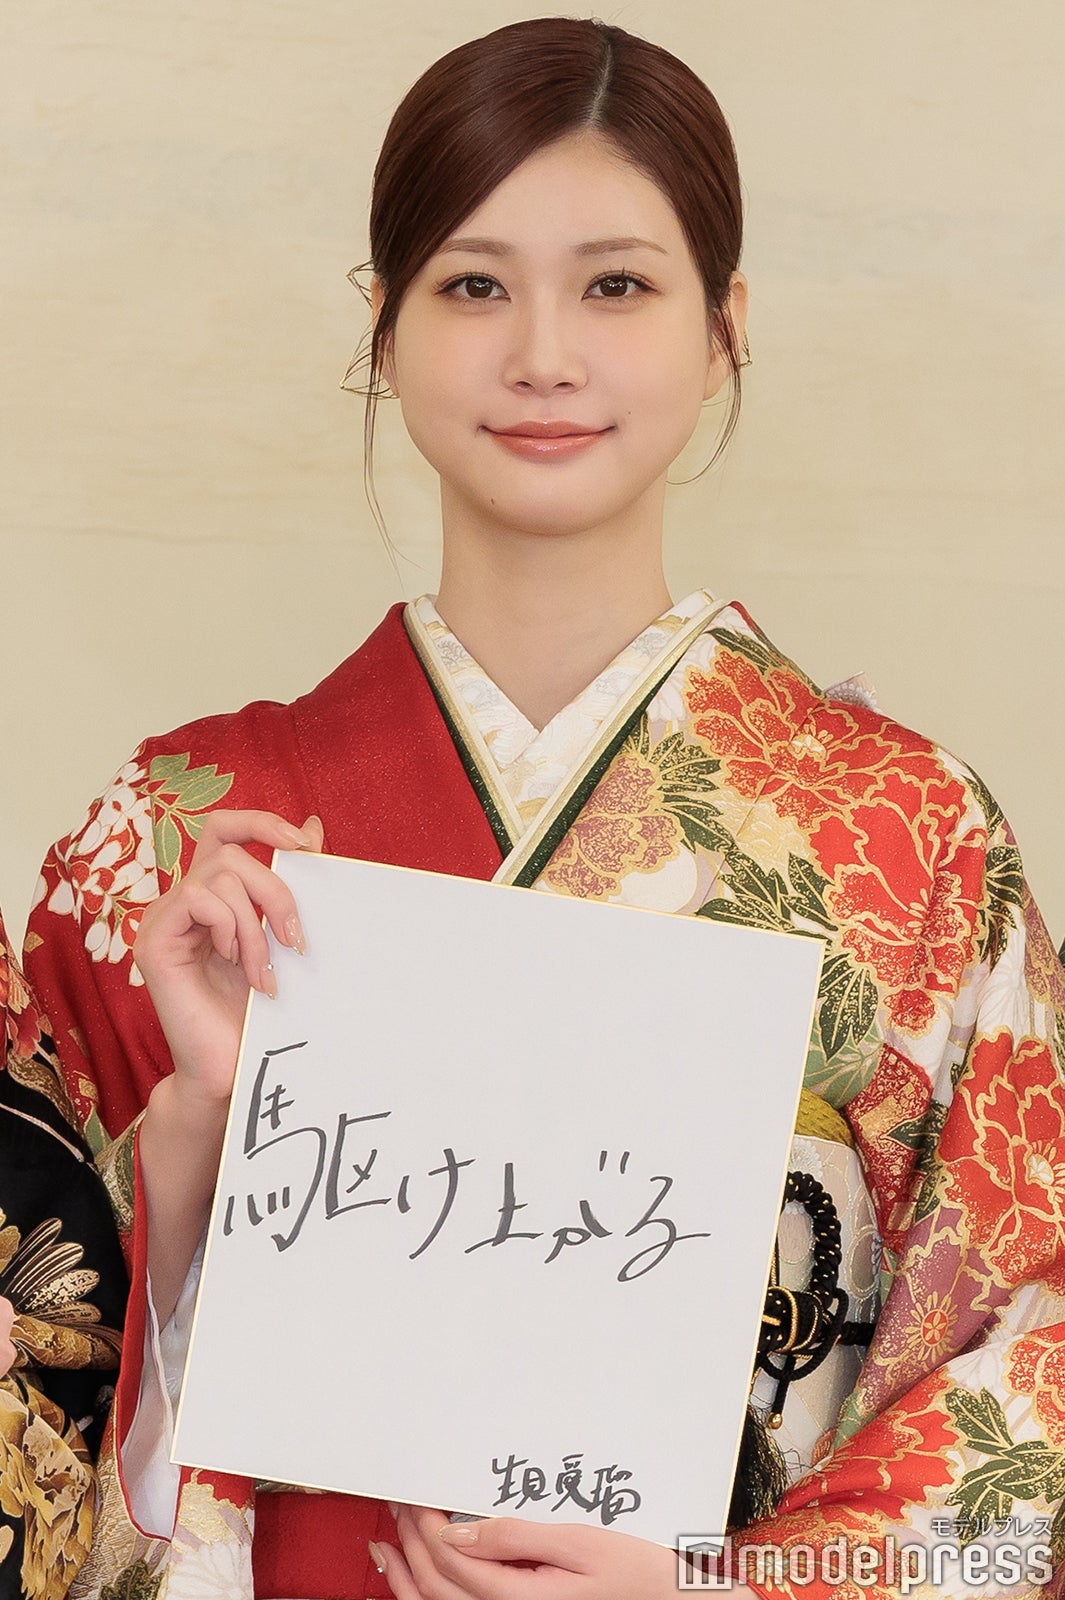 駆け上がる
生見愛瑠
モデルプレス
modelpress